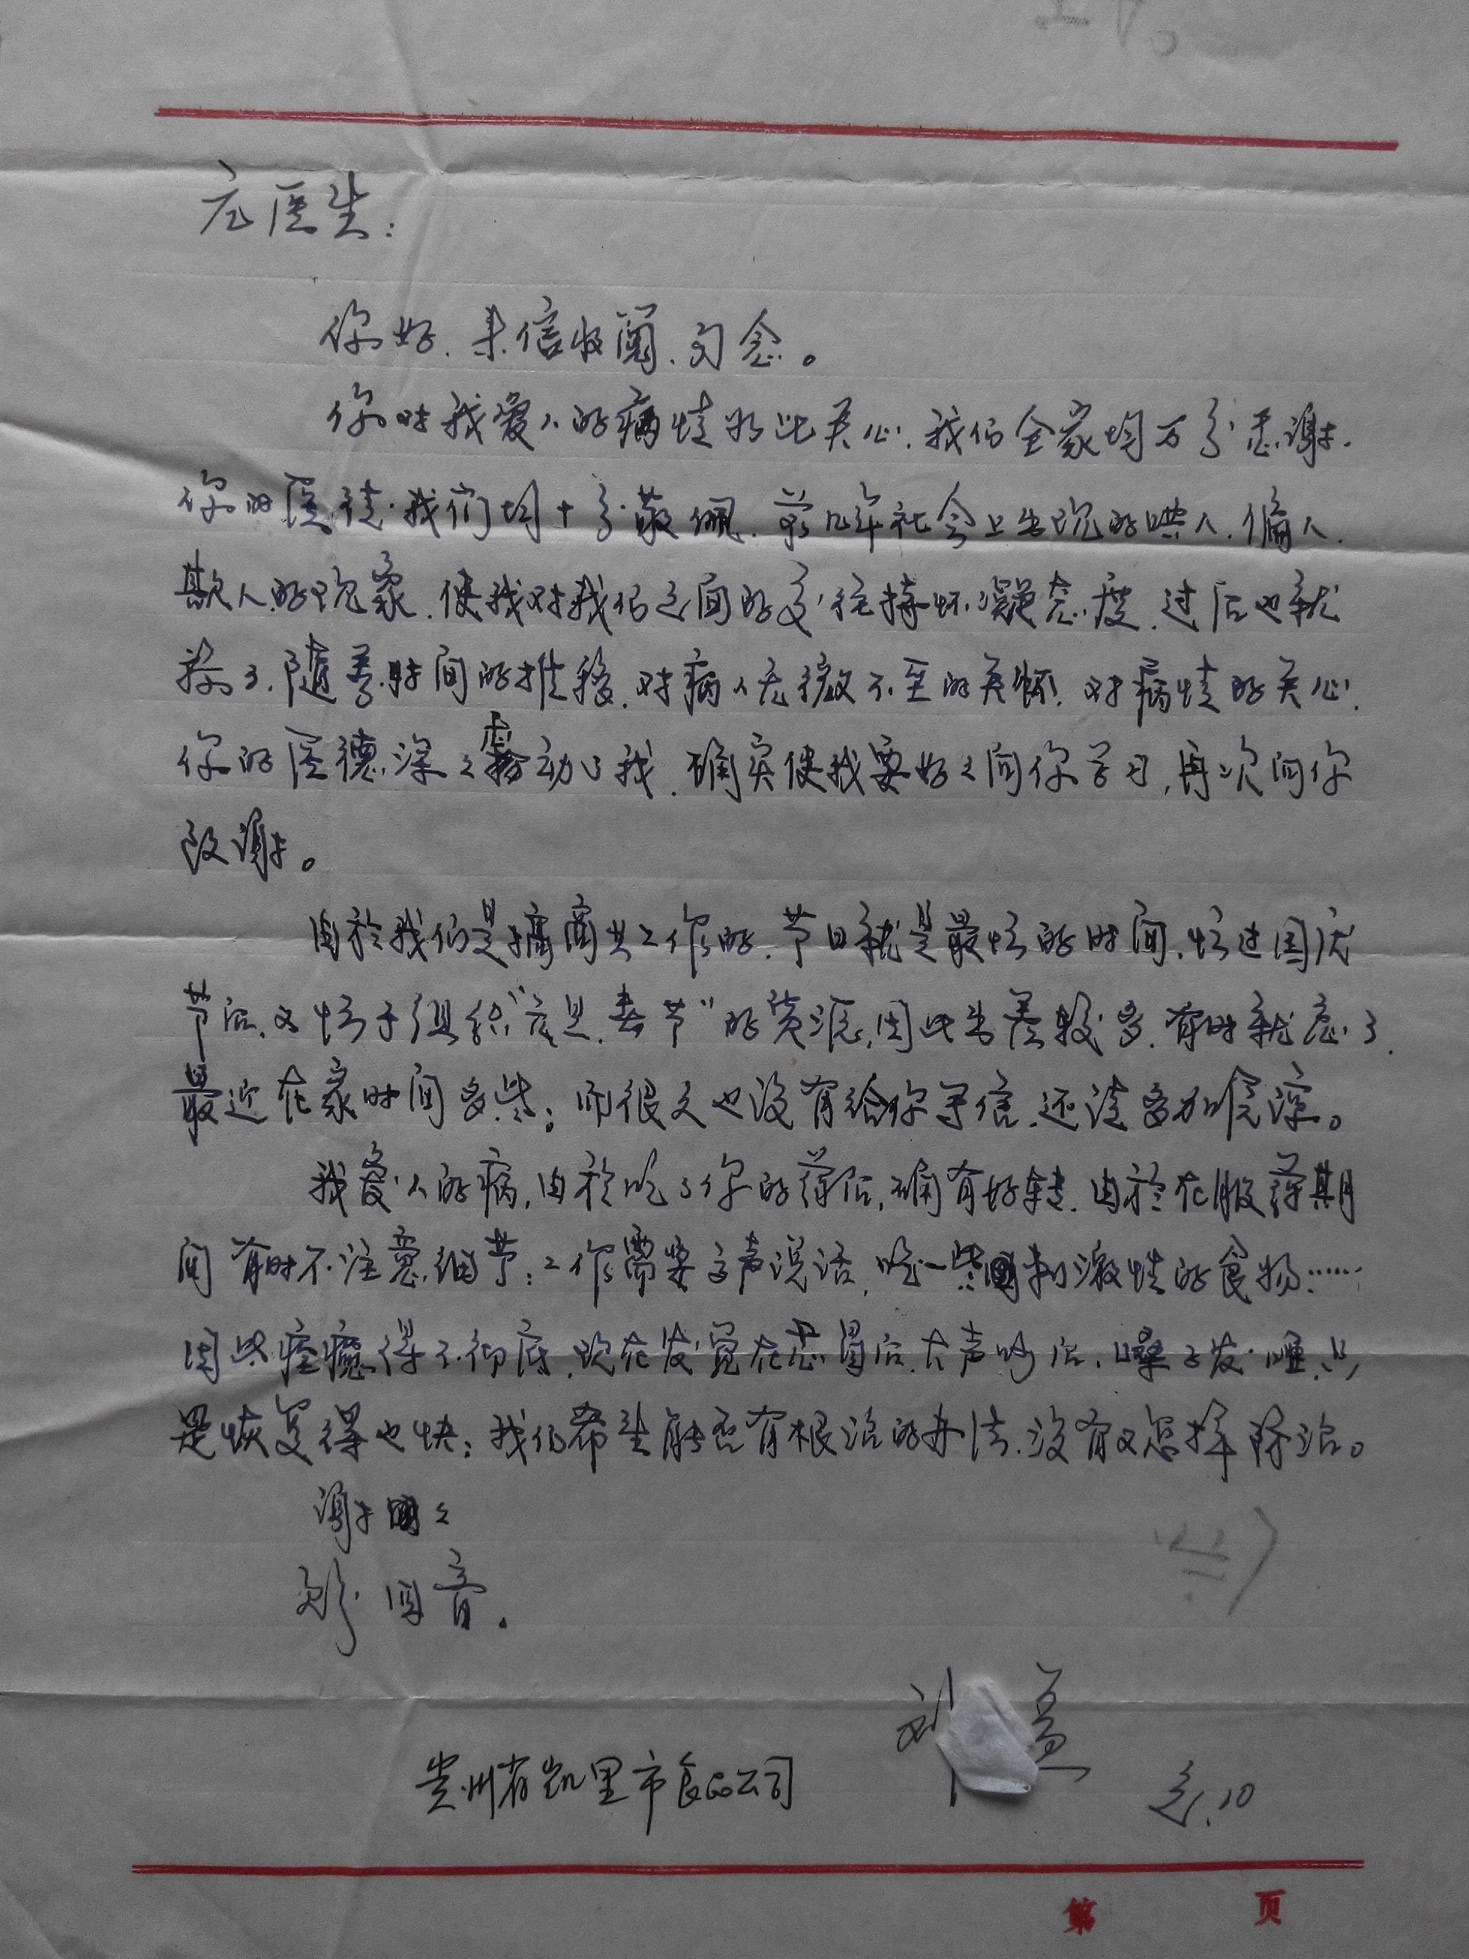 医生：
你好、来信收阅、勿念。
你对我爱人的病情如此关心、我们全家均万分感谢、
你的医德、我们均十分敬佩、前几年社会上出现的哄人、偏人、
欺人的现象、使我对我们之间的交往持怀凝态度、过后也就
算了、随着时间的推移、对病人无微不至的关怀、对病情的关心、
你的医德深々感动了我、确实使我要好々向你学习，再次向你
致谢。
由於我们是搞商业工作的、节日就是最忙的时间、忙过国庆
节后、又忙于组织“元旦、春节”的货源，因此出差较多、有时就忘了、
最近在家时间多些。而很久也没有给你写信、还请多加原谅。
我爱人的病，由於吃了你的药后，确有好转、由於在服药期
间有时不注意细节：工作需要高声说话，吃一些刺激性的食物……
因此痊癒得不彻底、现在发觉在感冒后、大声吵后、嗓子发哑、只
是恢复得也快；我们希望能否有根治的办法、没有又怎样防治。
谢々
盼回音。
刘
贵州省凯里市食品公司
10
第 页